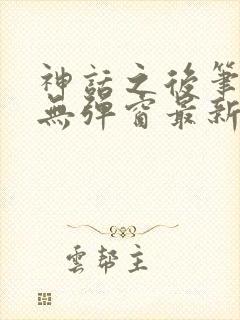 神話之後筆
無彈窗最新
雲幫主